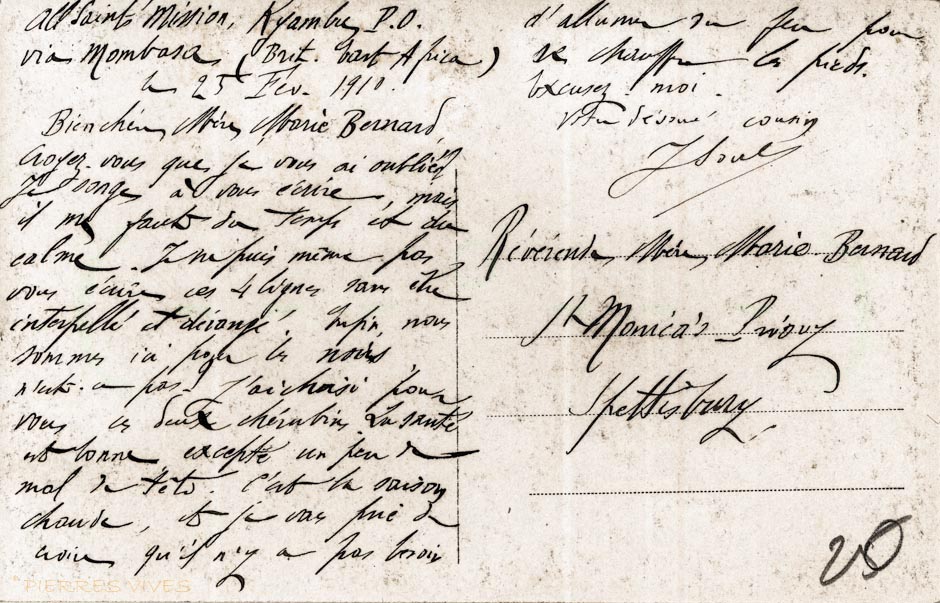 All Saints Mission, Kyambu P.O.
via Mombasa (Brit. East Africa)
le 25 Fév. 1910.
Bien chère Mère Marie Bernard,
Croyez-vous que je vous ai oubliée?
Je songe à vous écrire, mais
il me faut du temps et du
calme. Je ne puis même pas
vous écrire ces 4 lignes sans être
interpellé et dérangé. Enfin, nous
sommes ici pour les noirs
n'est-ce pas? J'ai choisi pour
vous ces deux chérubins. La santé
est bonne excepté un peu de
mal de tête. C'est la saison
chaude, et je vous prie de
croire qu'il n'y a pas besoin
d'allumer du feu pour
se chauffer les pieds.
Excusez-moi.
Votre dévoué cousin
Révérende Mère Marie Bernard
St Monica's Priory
Spettisbury
20
PIERRES VIVES